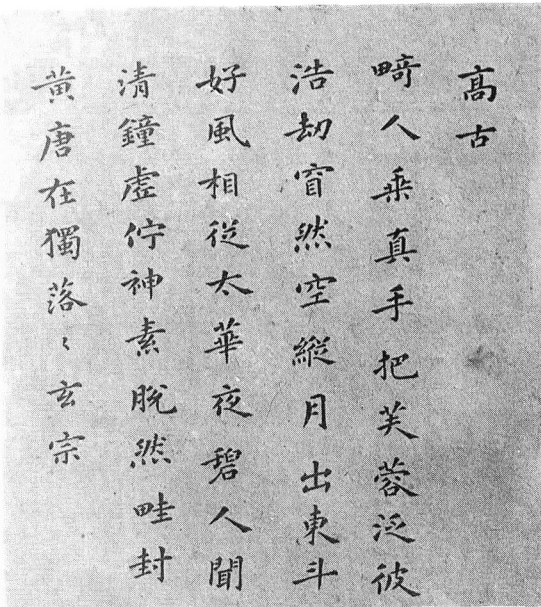 高古
畸人乘真手把芙蓉泛彼
浩劫窅然空縱月出東斗
好風相從太華夜碧人聞
清鐘虛佇神素脫然畦封
黃唐在獨落〻玄宗